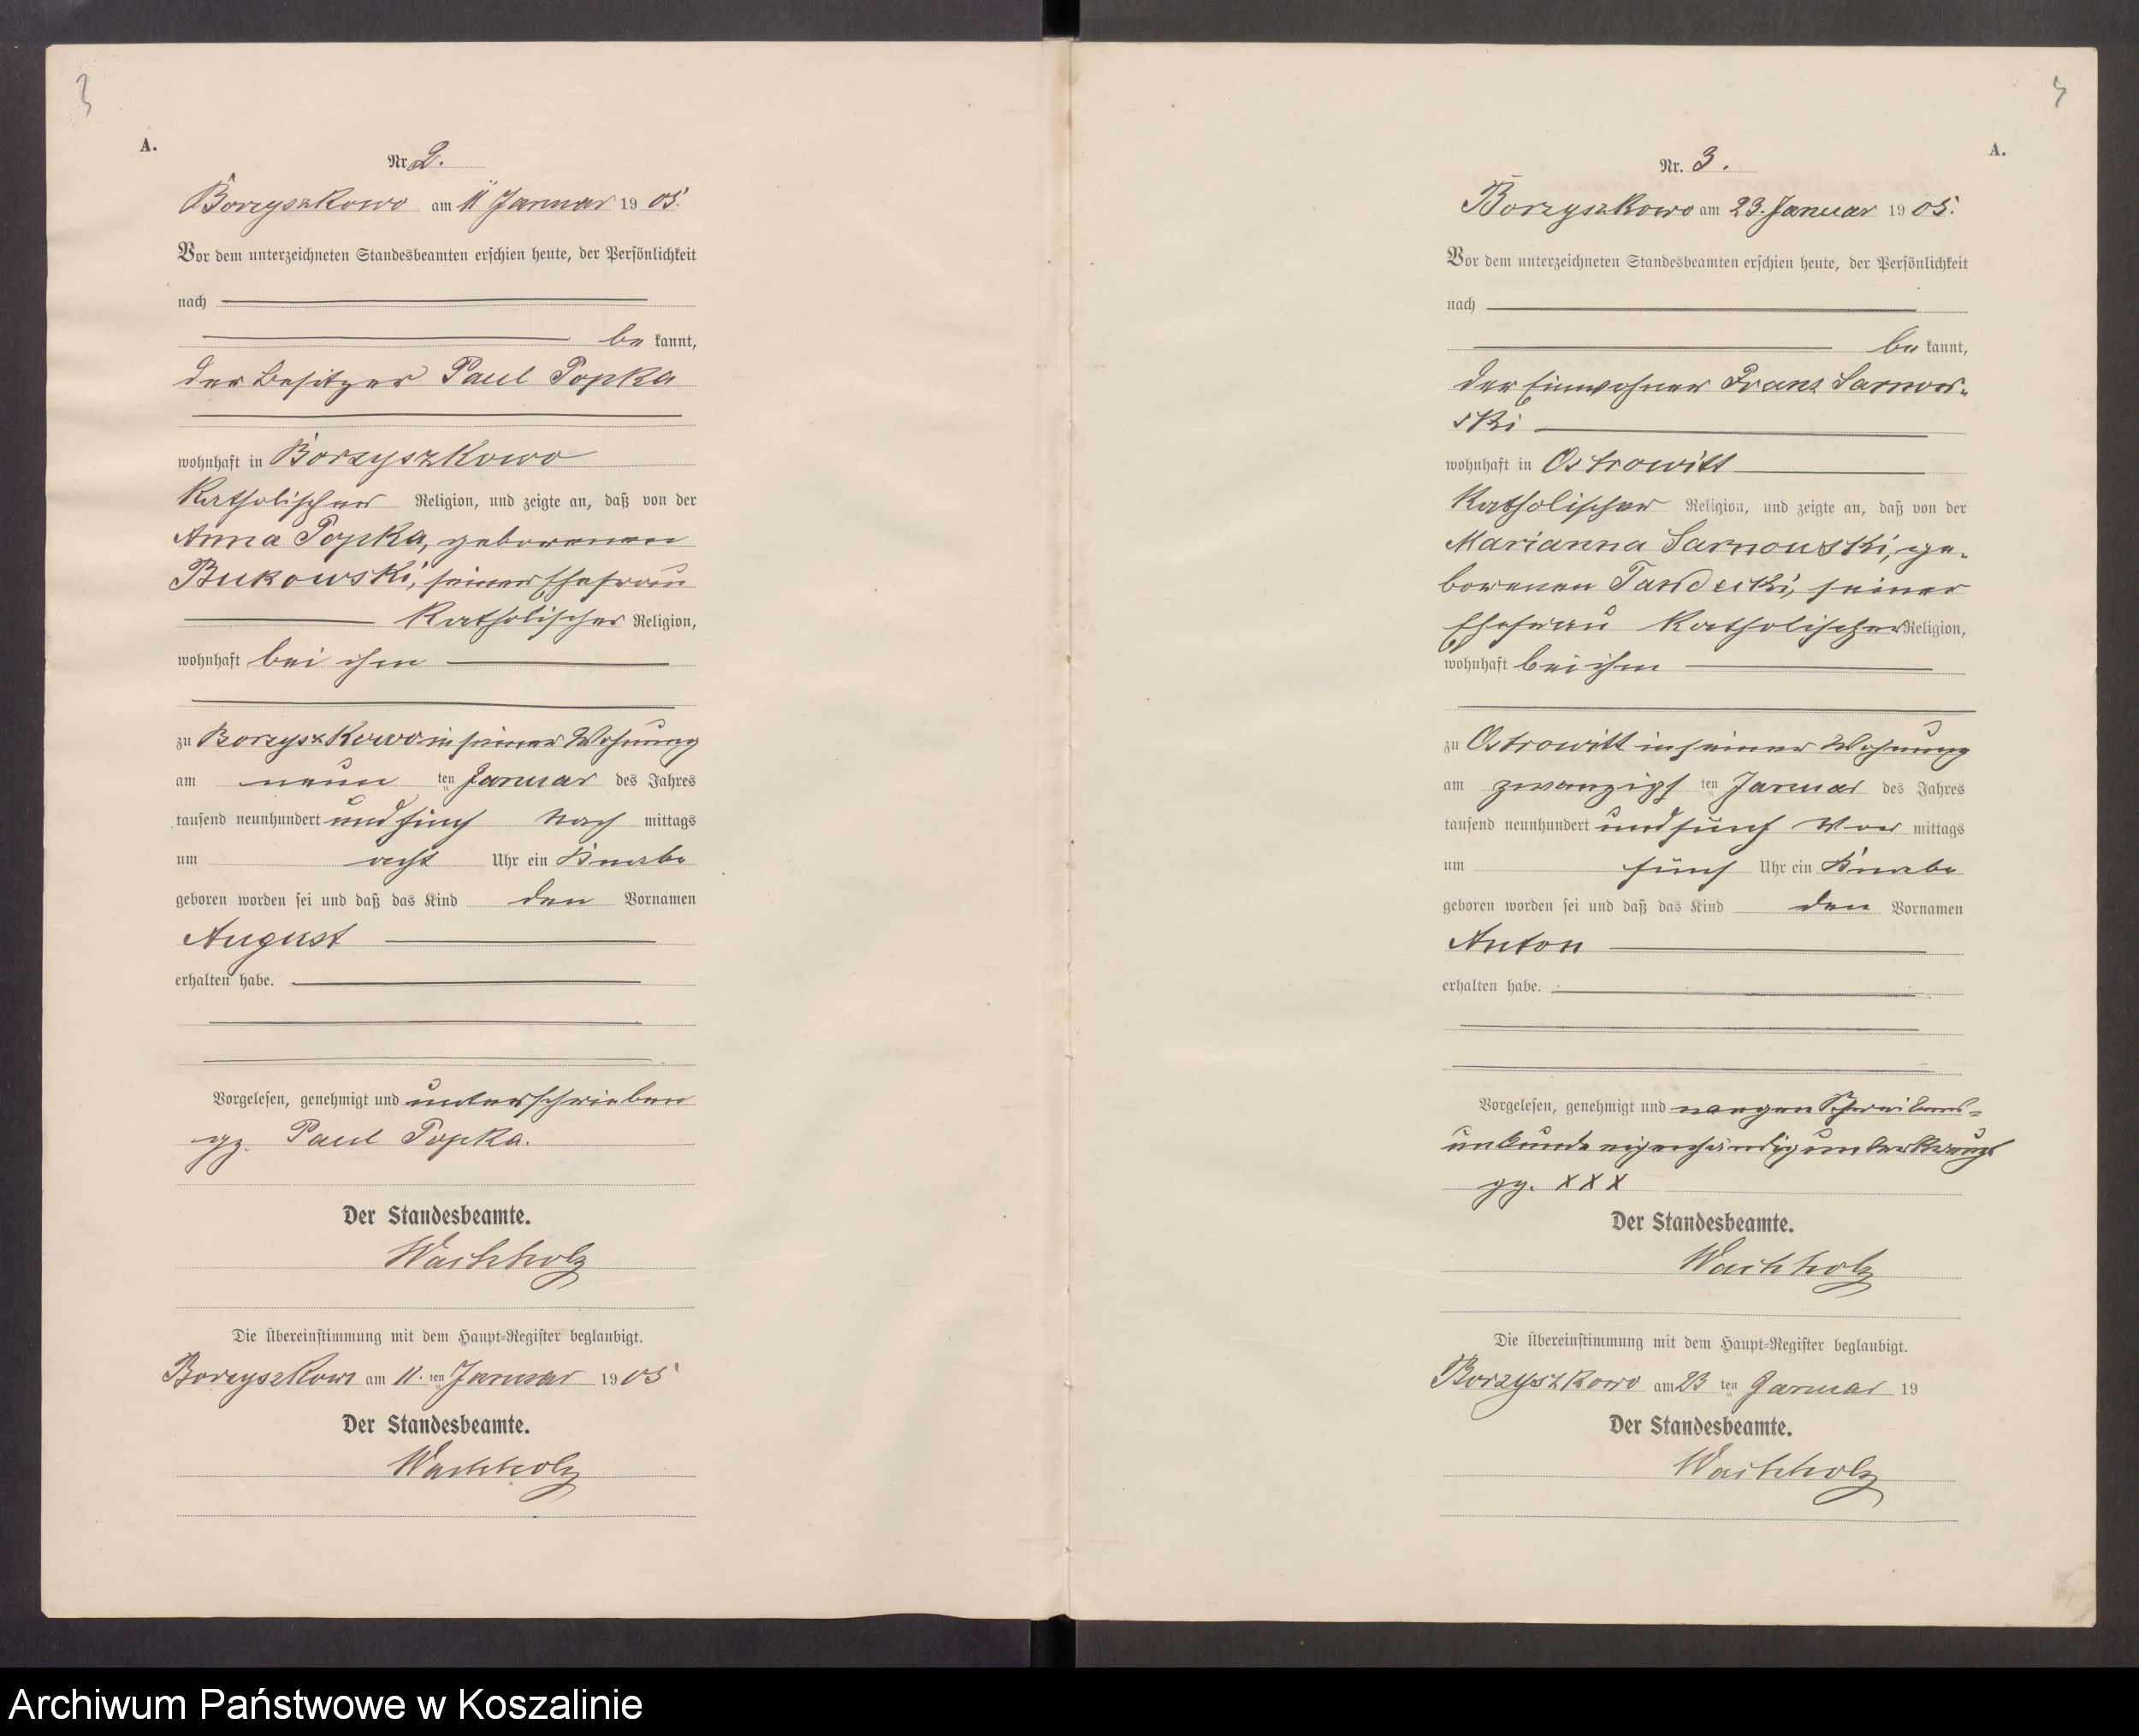 3
A.
Nr. 2.
Borzyszkowo am 11 Januar 1905.
Vor dem unterzeichneten Standesbeamten erschien heute, der Persönlichkeit
nach
be kannt,
der Besitzer Paul Popka
wohnhaft in Borzyszkowo
Katholischer Religion, und zeigte an, daß von der
Anna Popka, geborenen
Bukowski, seiner Ehefrau
Katholischer Religion,
wohnhaft bei ihm
zu Borzyszkowo in seiner Wohnung
am neun ten Januar des Jahres
tausend neunhundert und fünf Nach mittags
um acht Uhr ein Knabe
geboren worden sei und daß das Kind den Vornamen
August
erhalten habe.
Vorgelesen, genehmigt und unterschrieben
gz. Paul Popka.
Der Standesbeamte.
Wachholz
Die Übereinstimmung mit dem Haupt-Register beglaubigt.
Borzyszkowo am 11. ten Januar 1905
Der Standesbeamte.
Wachholz
A.
Nr. 3.
Borzyszkowo am 23. Januar 1905.
Vor dem unterzeichneten Standesbeamten erschien heute, der Persönlichkeit
nach
be kannt,
der Einwohner Franz Sarnow-
ski
wohnhaft in Ostrowitt
Katholischer Religion, und zeigte an, daß von der
Marianna Sarnowski, ge-
borenen Tandecki, seiner
Ehefrau Katholischer Religion,
wohnhaft bei ihm
zu Ostrowitt in seiner Wohnung
am zwanzigs ten Januar des Jahres
tausend neunhundert und fünf Vor mittags
um fünf Uhr ein Knabe
geboren worden sei und daß das Kind den Vornamen
Anton
erhalten habe.
Vorgelesen, genehmigt und wegen Schreibens-
unkunde eigenhändig unterkreuzt
gz. XXX
Der Standesbeamte.
Wachholz
Die Übereinstimmung mit dem Haupt-Register beglaubigt.
Borzyszkowo am 23 ten Januar 19
Der Standesbeamte.
Wachholz
Archiwum Państwowe w Koszalinie